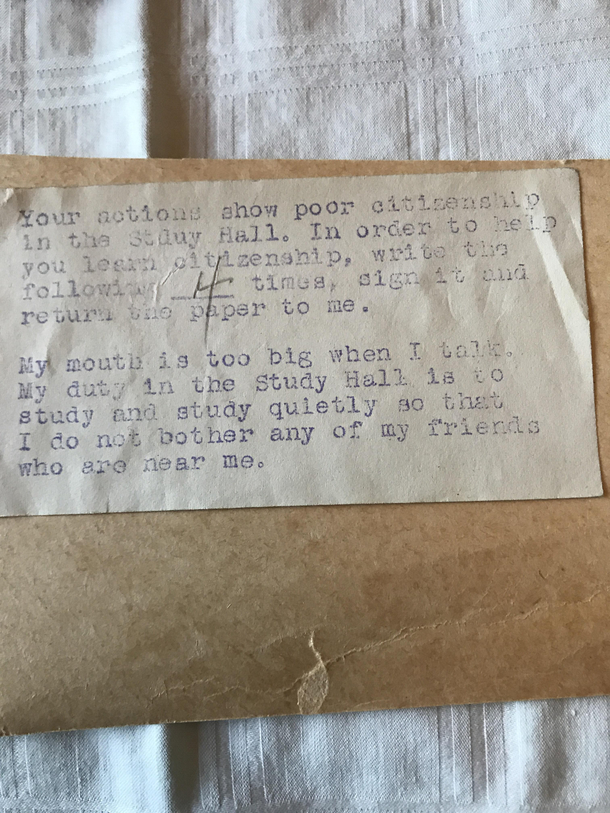 Your actions show poor citizenship
in the Stduy Hall. In order to help
you learn citizenship, write the
following 4 times, sign it and
return the paper to me.
My mouth is too big when I talk.
My duty in the Study Hall is to
study and study quietly so that
I do not bother any of my friends
who are near me.